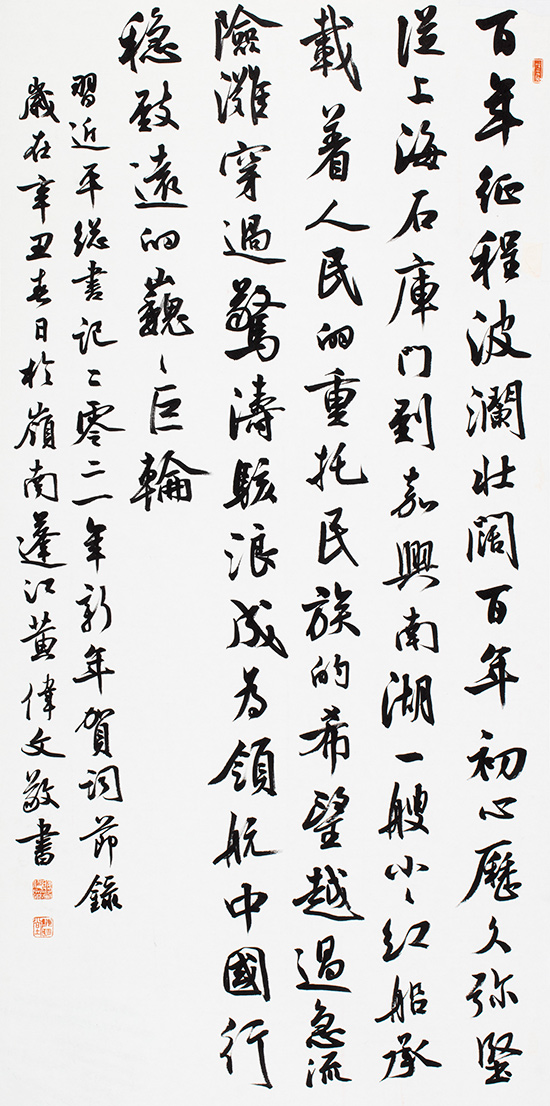 百年征程波瀾壯闊百年初心歷久弥堅
從上海石庫門到嘉興南湖一艘小〻红船承
載着人民的重托民族的希望越過急流
險灘穿過驚濤駭浪成为領航中國行
穩致遠的巍〻巨輪
習近平總書記二零二一年新年賀詞節錄
歲在辛丑春日於嶺南蓬江黄偉文敬書